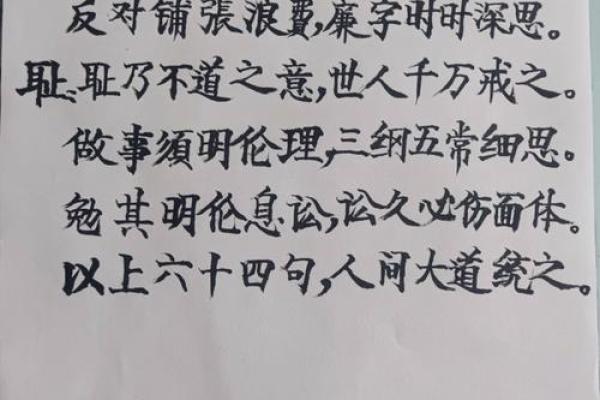 反对铺張浪費,廉字时时深思。
耻、耻乃不道之意,世人千万戒之。
做事須明伦理,三纲五常细思。
勉其明伦息讼,讼久必伤面体。
以上六十四句,人间大道统之。